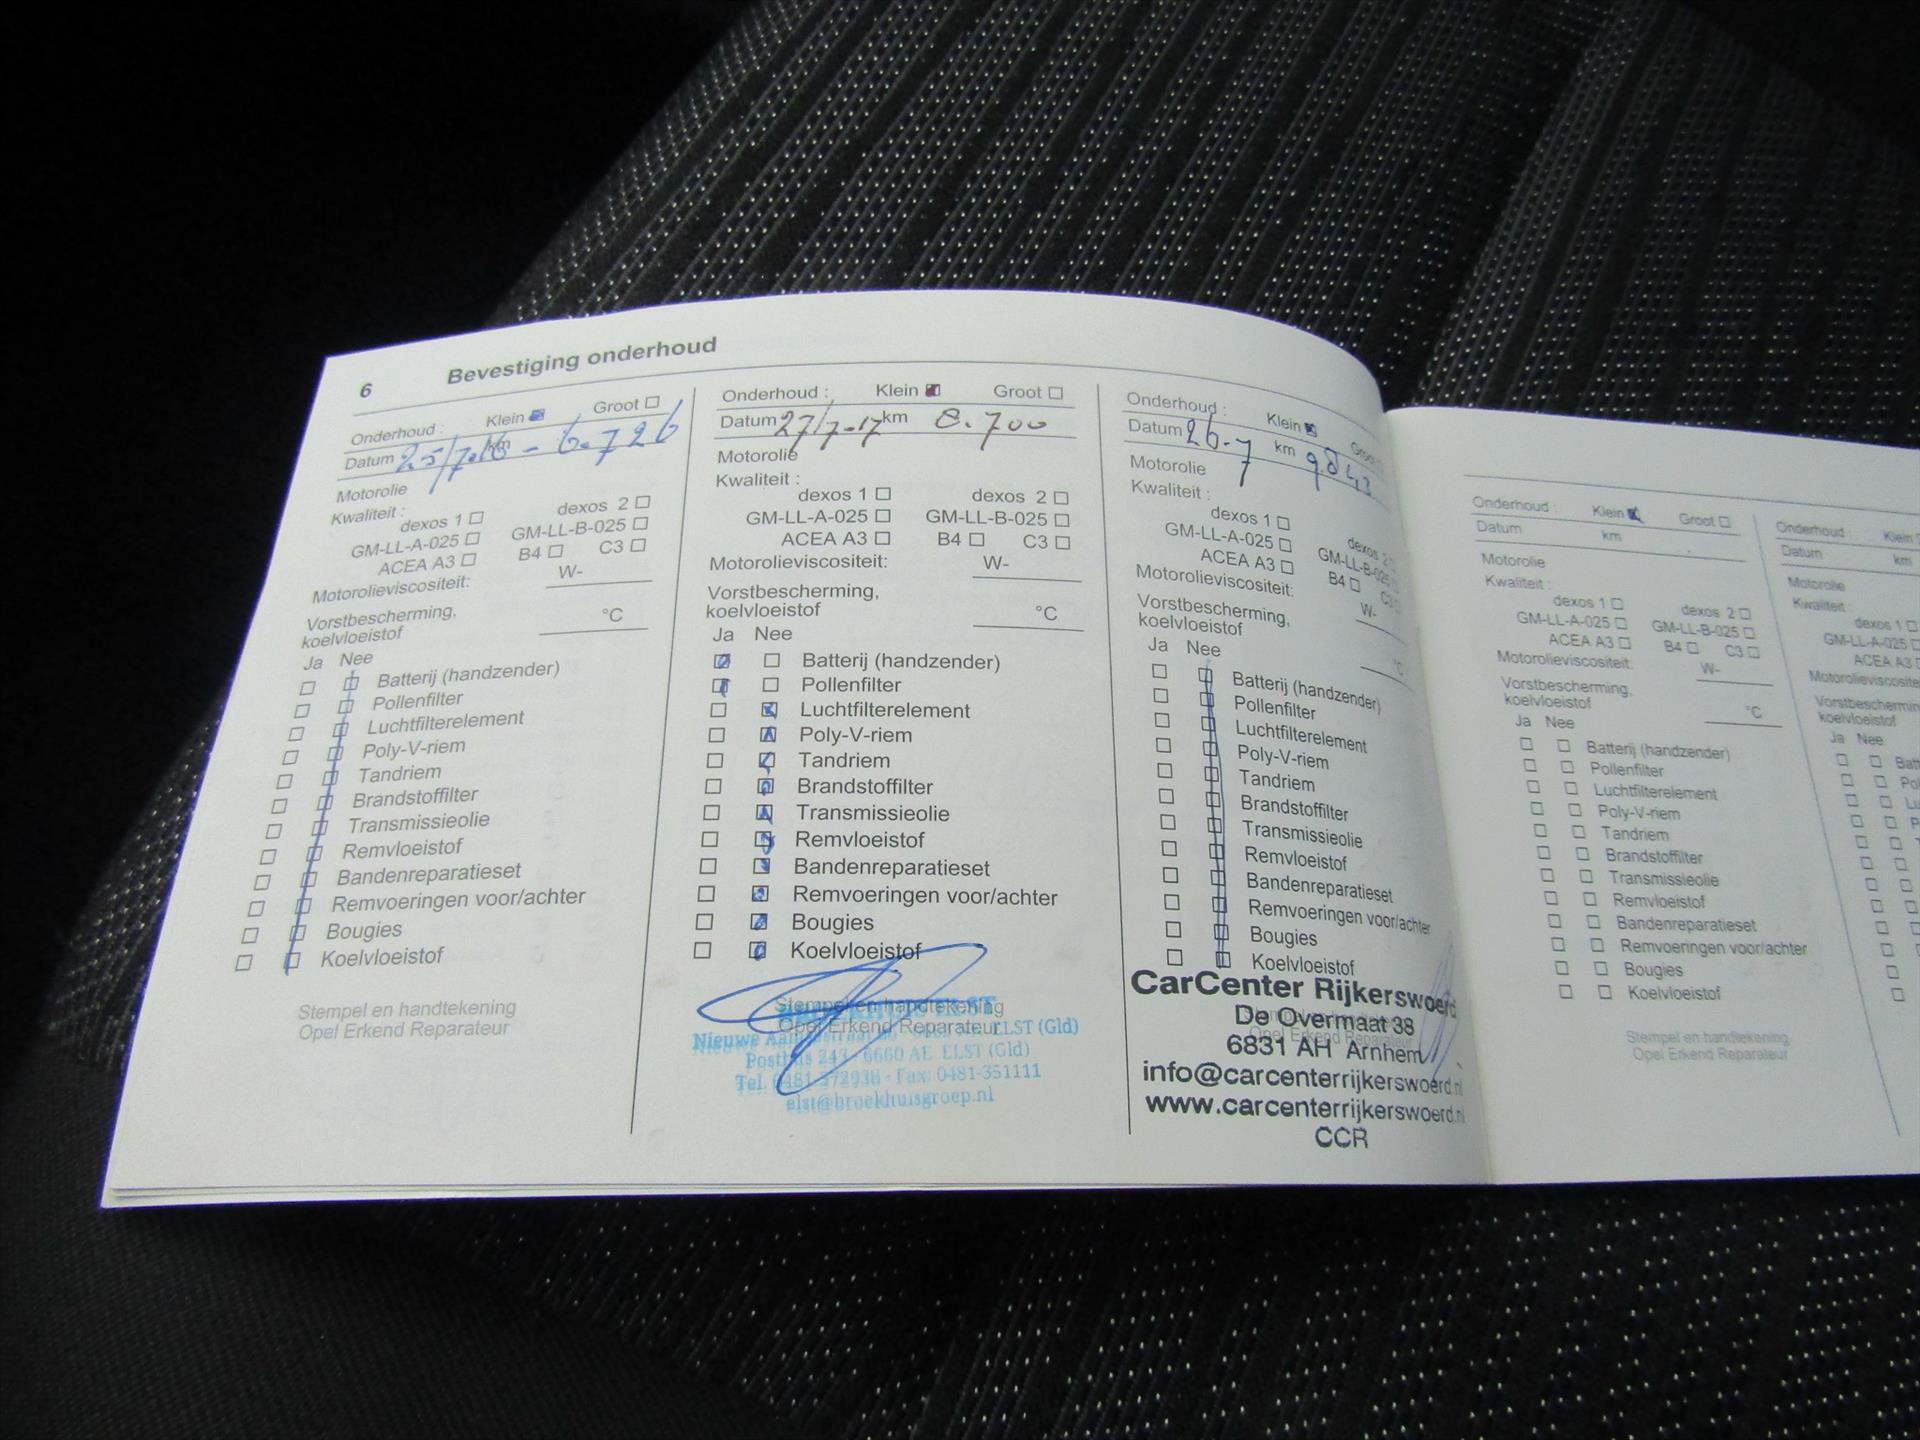 6 Bevestiging onderhoud
Onderhoud : Klein Groot
Datum 25/7.16 km - 6.726
Motorolie
Kwaliteit :
dexos 1 dexos 2
GM-LL-A-025 GM-LL-B-025
ACEA A3 B4 C3
Motorolieviscositeit: W-
Vorstbescherming,
koelvloeistof °C
Ja Nee
Batterij (handzender)
Pollenfilter
Luchtfilterelement
Poly-V-riem
Tandriem
Brandstoffilter
Transmissieolie
Remvloeistof
Bandenreparatieset
Remvoeringen voor/achter
Bougies
Koelvloeistof
Stempel en handtekening
Opel Erkend Reparateur
Onderhoud : Klein Groot
Datum 27/7.17 km 8.700
Motorolie
Kwaliteit :
dexos 1 dexos 2
GM-LL-A-025 GM-LL-B-025
ACEA A3 B4 C3
Motorolieviscositeit: W-
Vorstbescherming,
koelvloeistof °C
Ja Nee
Batterij (handzender)
Pollenfilter
Luchtfilterelement
Poly-V-riem
Tandriem
Brandstoffilter
Transmissieolie
Remvloeistof
Bandenreparatieset
Remvoeringen voor/achter
Bougies
Koelvloeistof
Stempel en handtekening
Opel Erkend Reparateur
ELST
Nieuwe ELST (Gld)
Postbus 243 - 6660 AE ELST (Gld)
Tel. 0481-372938 - Fax: 0481-351111
elst@broekhuisgroep.nl
Onderhoud : Klein Groot
Datum 26-7 km
Motorolie
Kwaliteit :
dexos 1 dexos 2
GM-LL-A-025 GM-LL-B-025
ACEA A3 B4 C3
Motorolieviscositeit: W-
Vorstbescherming,
koelvloeistof °C
Ja Nee
Batterij (handzender)
Pollenfilter
Luchtfilterelement
Poly-V-riem
Tandriem
Brandstoffilter
Transmissieolie
Remvloeistof
Bandenreparatieset
Remvoeringen voor/achter
Bougies
Koelvloeistof
CarCenter Rijkerswoerd
De Overmaat 38
6831 AH Arnhem
info@carcenterrijkerswoerd.nl
www.carcenterrijkerswoerd.nl
CCR
Onderhoud : Klein Groot
Datum km
Motorolie
Kwaliteit :
dexos 1 dexos 2
GM-LL-A-025 GM-LL-B-025
ACEA A3 B4 C3
Motorolieviscositeit: W-
Vorstbescherming,
koelvloeistof °C
Ja Nee
Batterij (handzender)
Pollenfilter
Luchtfilterelement
Poly-V-riem
Tandriem
Brandstoffilter
Transmissieolie
Remvloeistof
Bandenreparatieset
Remvoeringen voor/achter
Bougies
Koelvloeistof
Stempel en handtekening
Opel Erkend Reparateur
Onderhoud : Klein
Datum km
Motorolie
Kwaliteit :
dexos 1
GM-LL-A-025
ACEA A3
Ja Nee